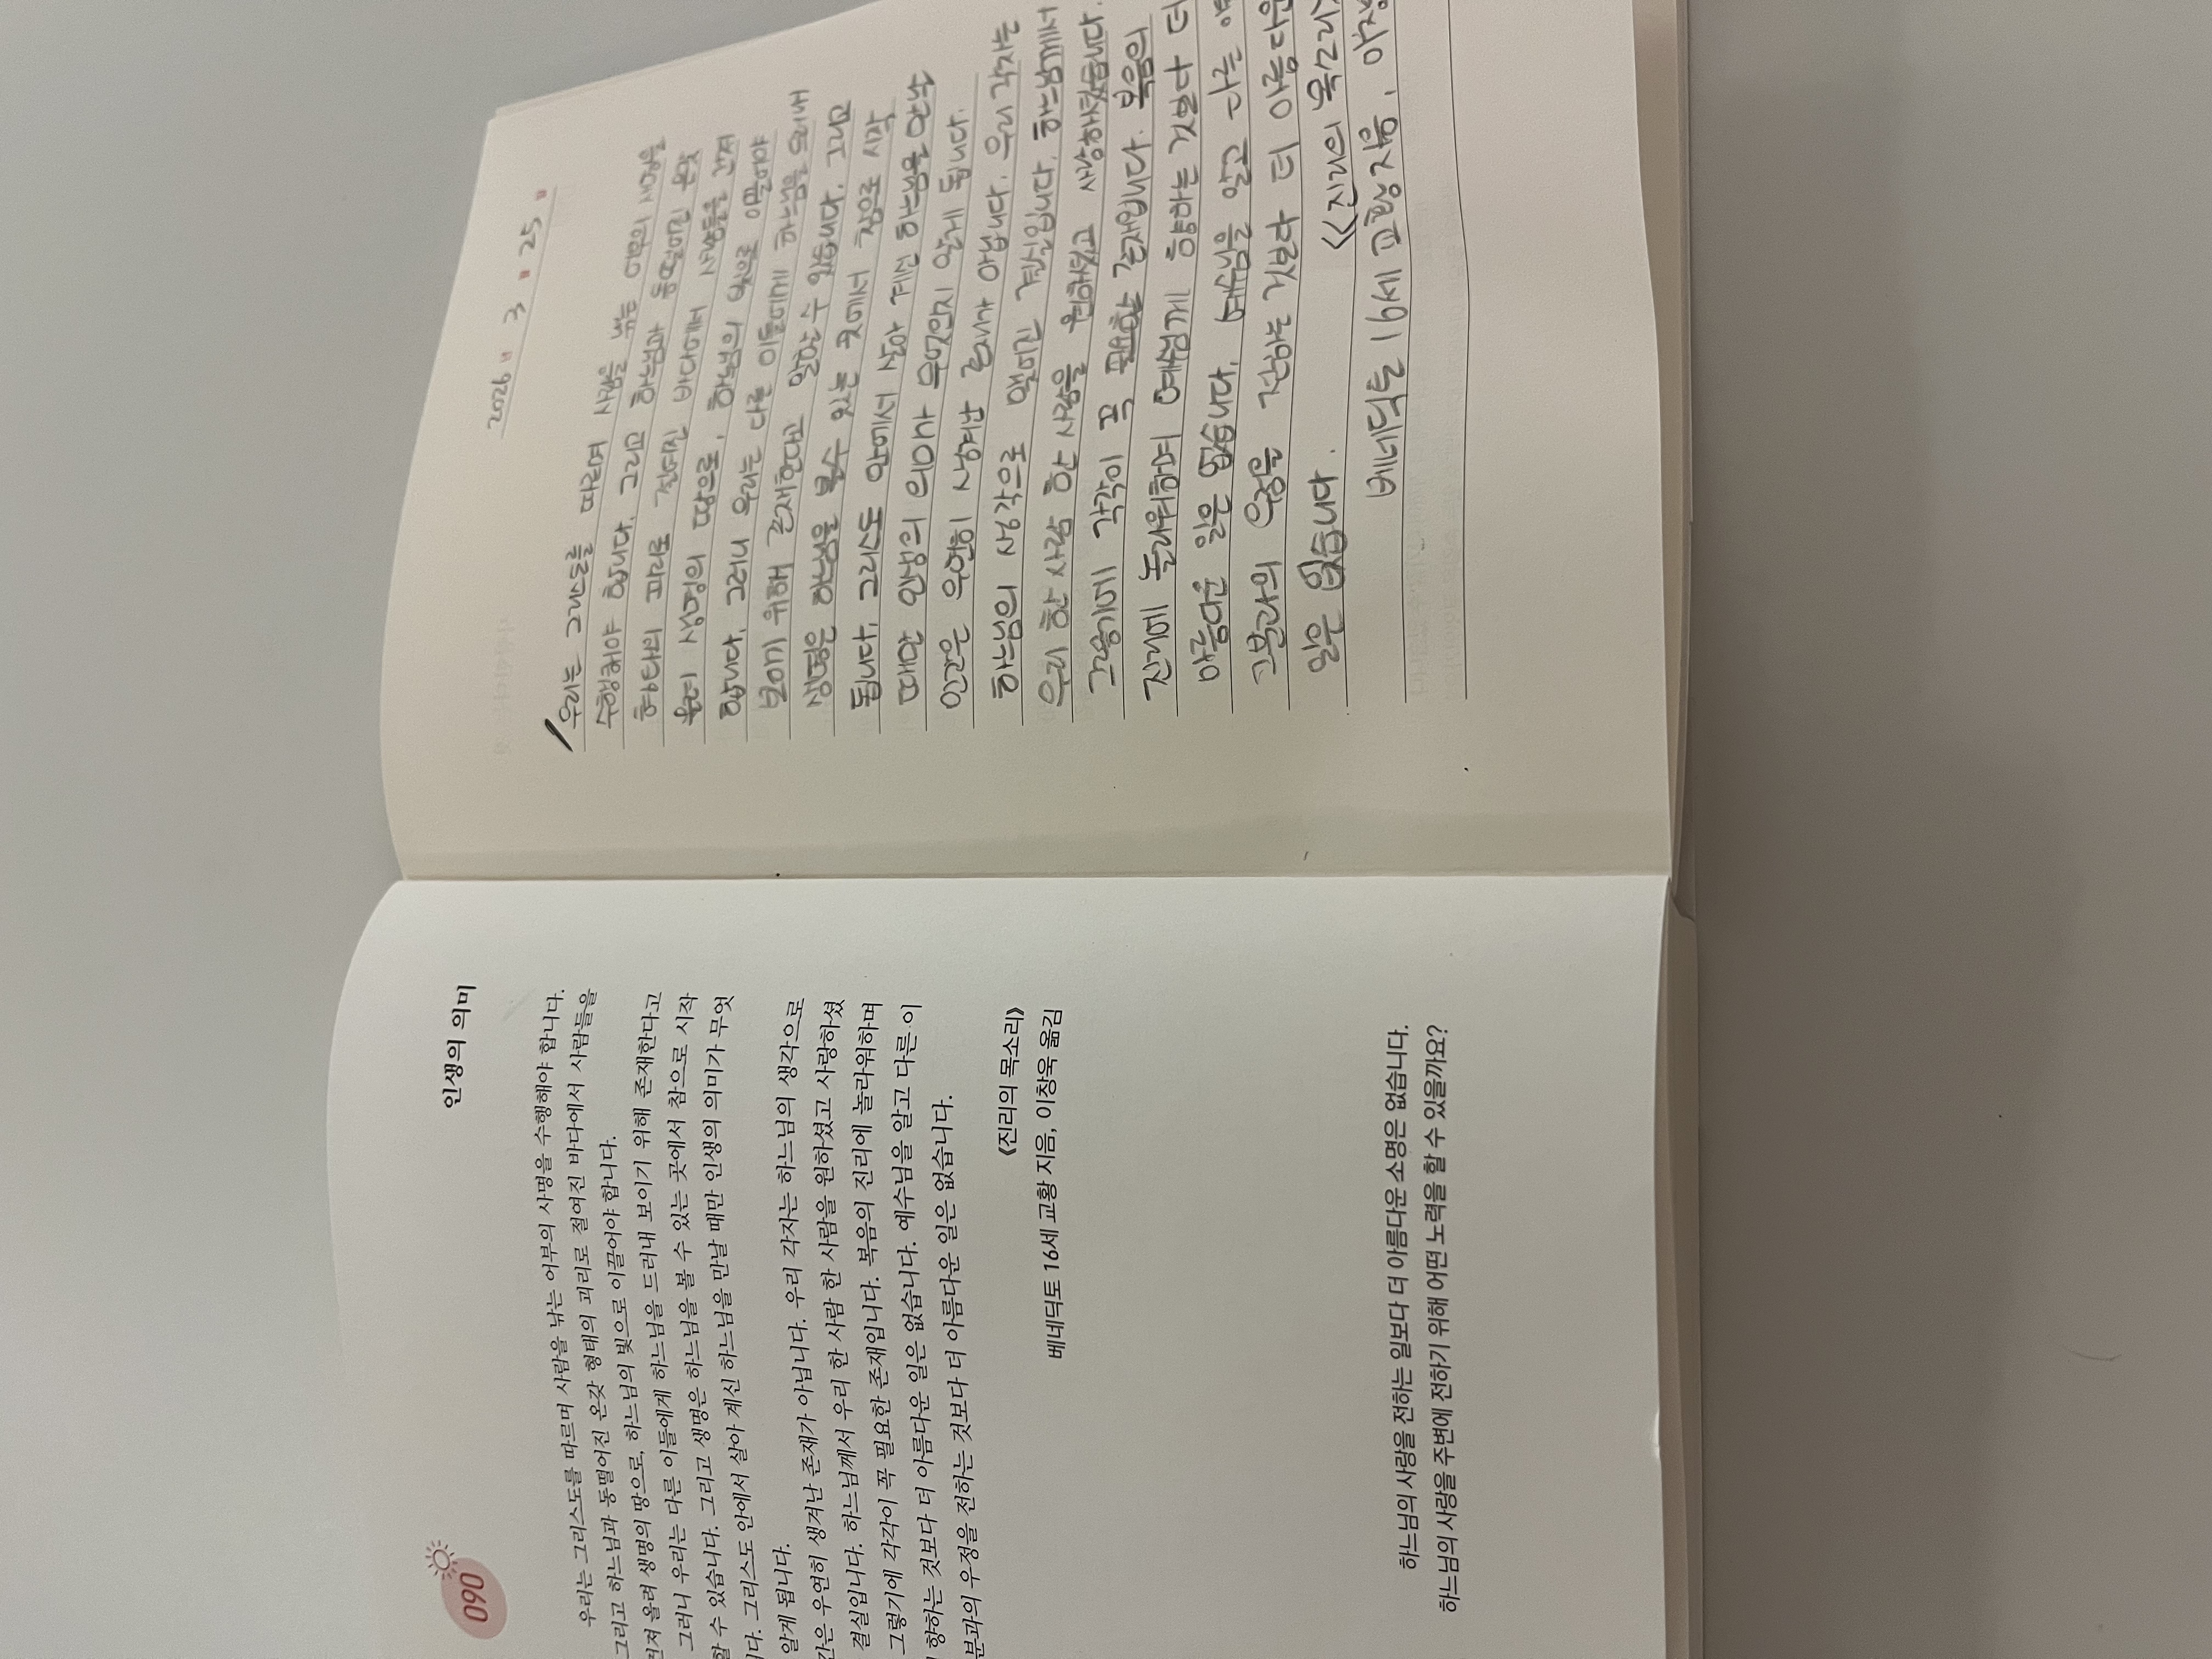 090
인생의 의미
우리는 그리스도를 따르며 사람을 낚는 어부의 사명을 수행해야 합니다.
그리고 하느님과 동떨어진 온갖 형태의 괴리로 절여진 바다에서 사람들을
건져 올려 생명의 땅으로, 하느님의 빛으로 이끌어야 합니다.
그러니 우리는 다른 이들에게 하느님을 드러내 보이기 위해 존재한다고
할 수 있습니다. 그리고 생명은 하느님을 볼 수 있는 곳에서 참으로 시작
니다. 그리스도 안에서 살아 계신 하느님을 만날 때만 인생의 의미가 무엇
알게 됩니다.
간은 우연히 생겨난 존재가 아닙니다. 우리 각자는 하느님의 생각으로
결실입니다. 하느님께서 우리 한 사람 한 사람을 원하셨고 사랑하셨
그렇기에 각각이 꼭 필요한 존재입니다. 복음의 진리에 놀라워하며
향하는 것보다 더 아름다운 일은 없습니다. 예수님을 알고 다른 이
분과의 우정을 전하는 것보다 더 아름다운 일은 없습니다.
《진리의 목소리》
베네딕토 16세 교황 지음, 이창욱 옮김
하느님의 사랑을 전하는 일보다 더 아름다운 소명은 없습니다.
하느님의 사랑을 주변에 전하기 위해 어떤 노력을 할 수 있을까요?
2026 " 3 " 25 "
우리는 그리스도를 따르며 사람을 낚는 어부의 사명을
수행해야 합니다. 그리고 하느님과 동떨어진 온갖
형태의 괴리로 절여진 바다에서 사람들을 건져
올려 생명의 땅으로, 하느님의 빛으로 이끌어야
합니다. 그러니 우리는 다른 이들에게 하느님을 드러내
보이기 위해 존재한다고 할 수 있습니다. 그리고
생명은 하느님을 볼 수 있는 곳에서 참으로 시작
됩니다. 그리스도 안에서 살아 계신 하느님을 만날
때만 인생의 의미가 무엇인지 알게 됩니다.
인간은 우연히 생겨난 존재가 아닙니다. 우리 각자는
하느님의 생각으로 맺어진 결실입니다. 하느님께서
우리 한 사람 한 사람을 원하셨고 사랑하셨습니다.
그렇기에 각각이 꼭 필요한 존재입니다. 복음의
진리에 놀라워하며 예수님께 향하는 것보다 더
아름다운 일은 없습니다. 예수님을 알고 다른
그분과의 우정을 전하는 것보다 더 아름다운
일은 없습니다. 《진리의 목소리》
베네딕토 16세 교황 지음,